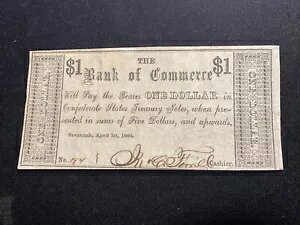 THE
$1 Bank of Commerce $1
Will Pay the Bearer ONE DOLLAR in
Confederate States Treasury Notes, when pre-
sented in sums of Five Dollars, and upwards.
Savannah, April 1st, 1864.
No. Cashier.
ONE DOLLAR
ONE DOLLAR